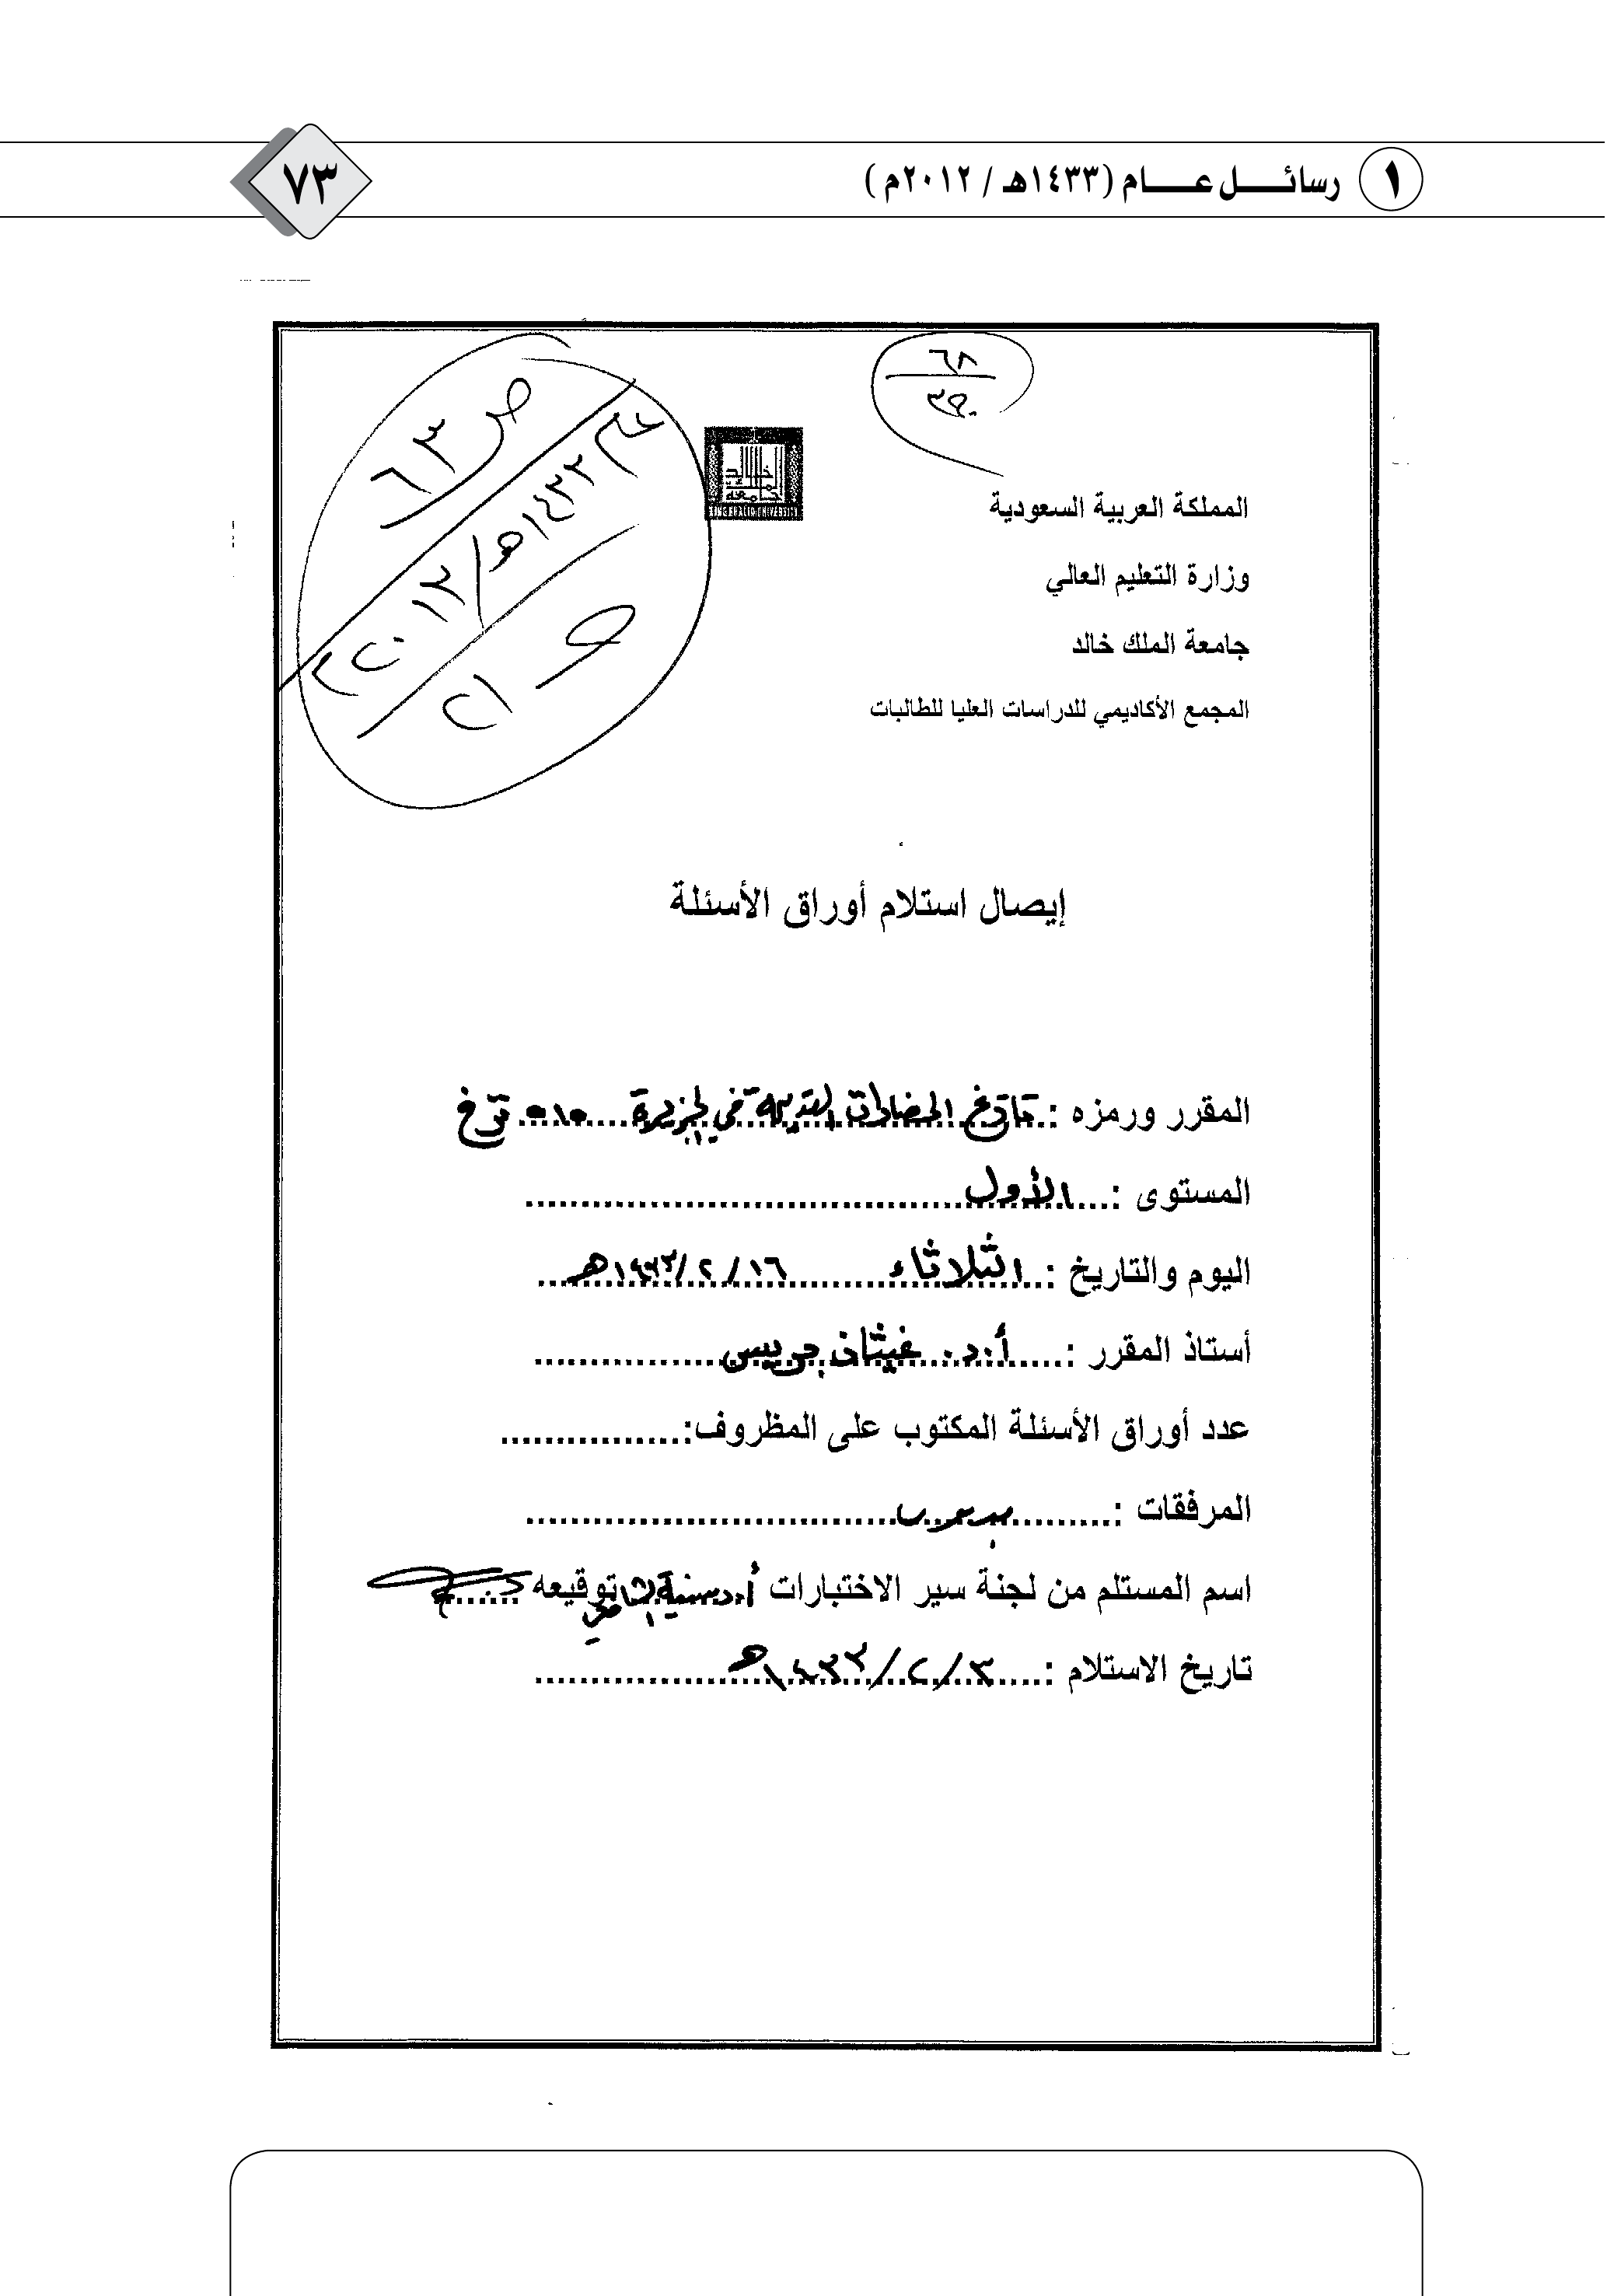 ١ رسائل عام (١٤٣٣هـ / ٢٠١٢م) ٧٣
٦٨
ص ٦٣
عام ١٤٣٣هـ / ٢٠١٢
المملكة العربية السعودية
وزارة التعليم العالي
جامعة الملك خالد
المجمع الأكاديمي للدراسات العليا للطالبات
إيصال استلام أوراق الأسئلة
المقرر ورمزه : تاريخ الحضارات القديمة في الجزيرة ٥١٥ ترخ
المستوى : الأول
اليوم والتاريخ : الثلاثاء ١٦ / ٢ / ١٤٣٣هـ
أستاذ المقرر : أ.د. غيثان جريس
عدد أوراق الأسئلة المكتوب على المظروف:
المرفقات : بدون
اسم المستلم من لجنة سير الاختبارات توقيعه
تاريخ الاستلام : ٣ / ٢ / ١٤٣٣هـ